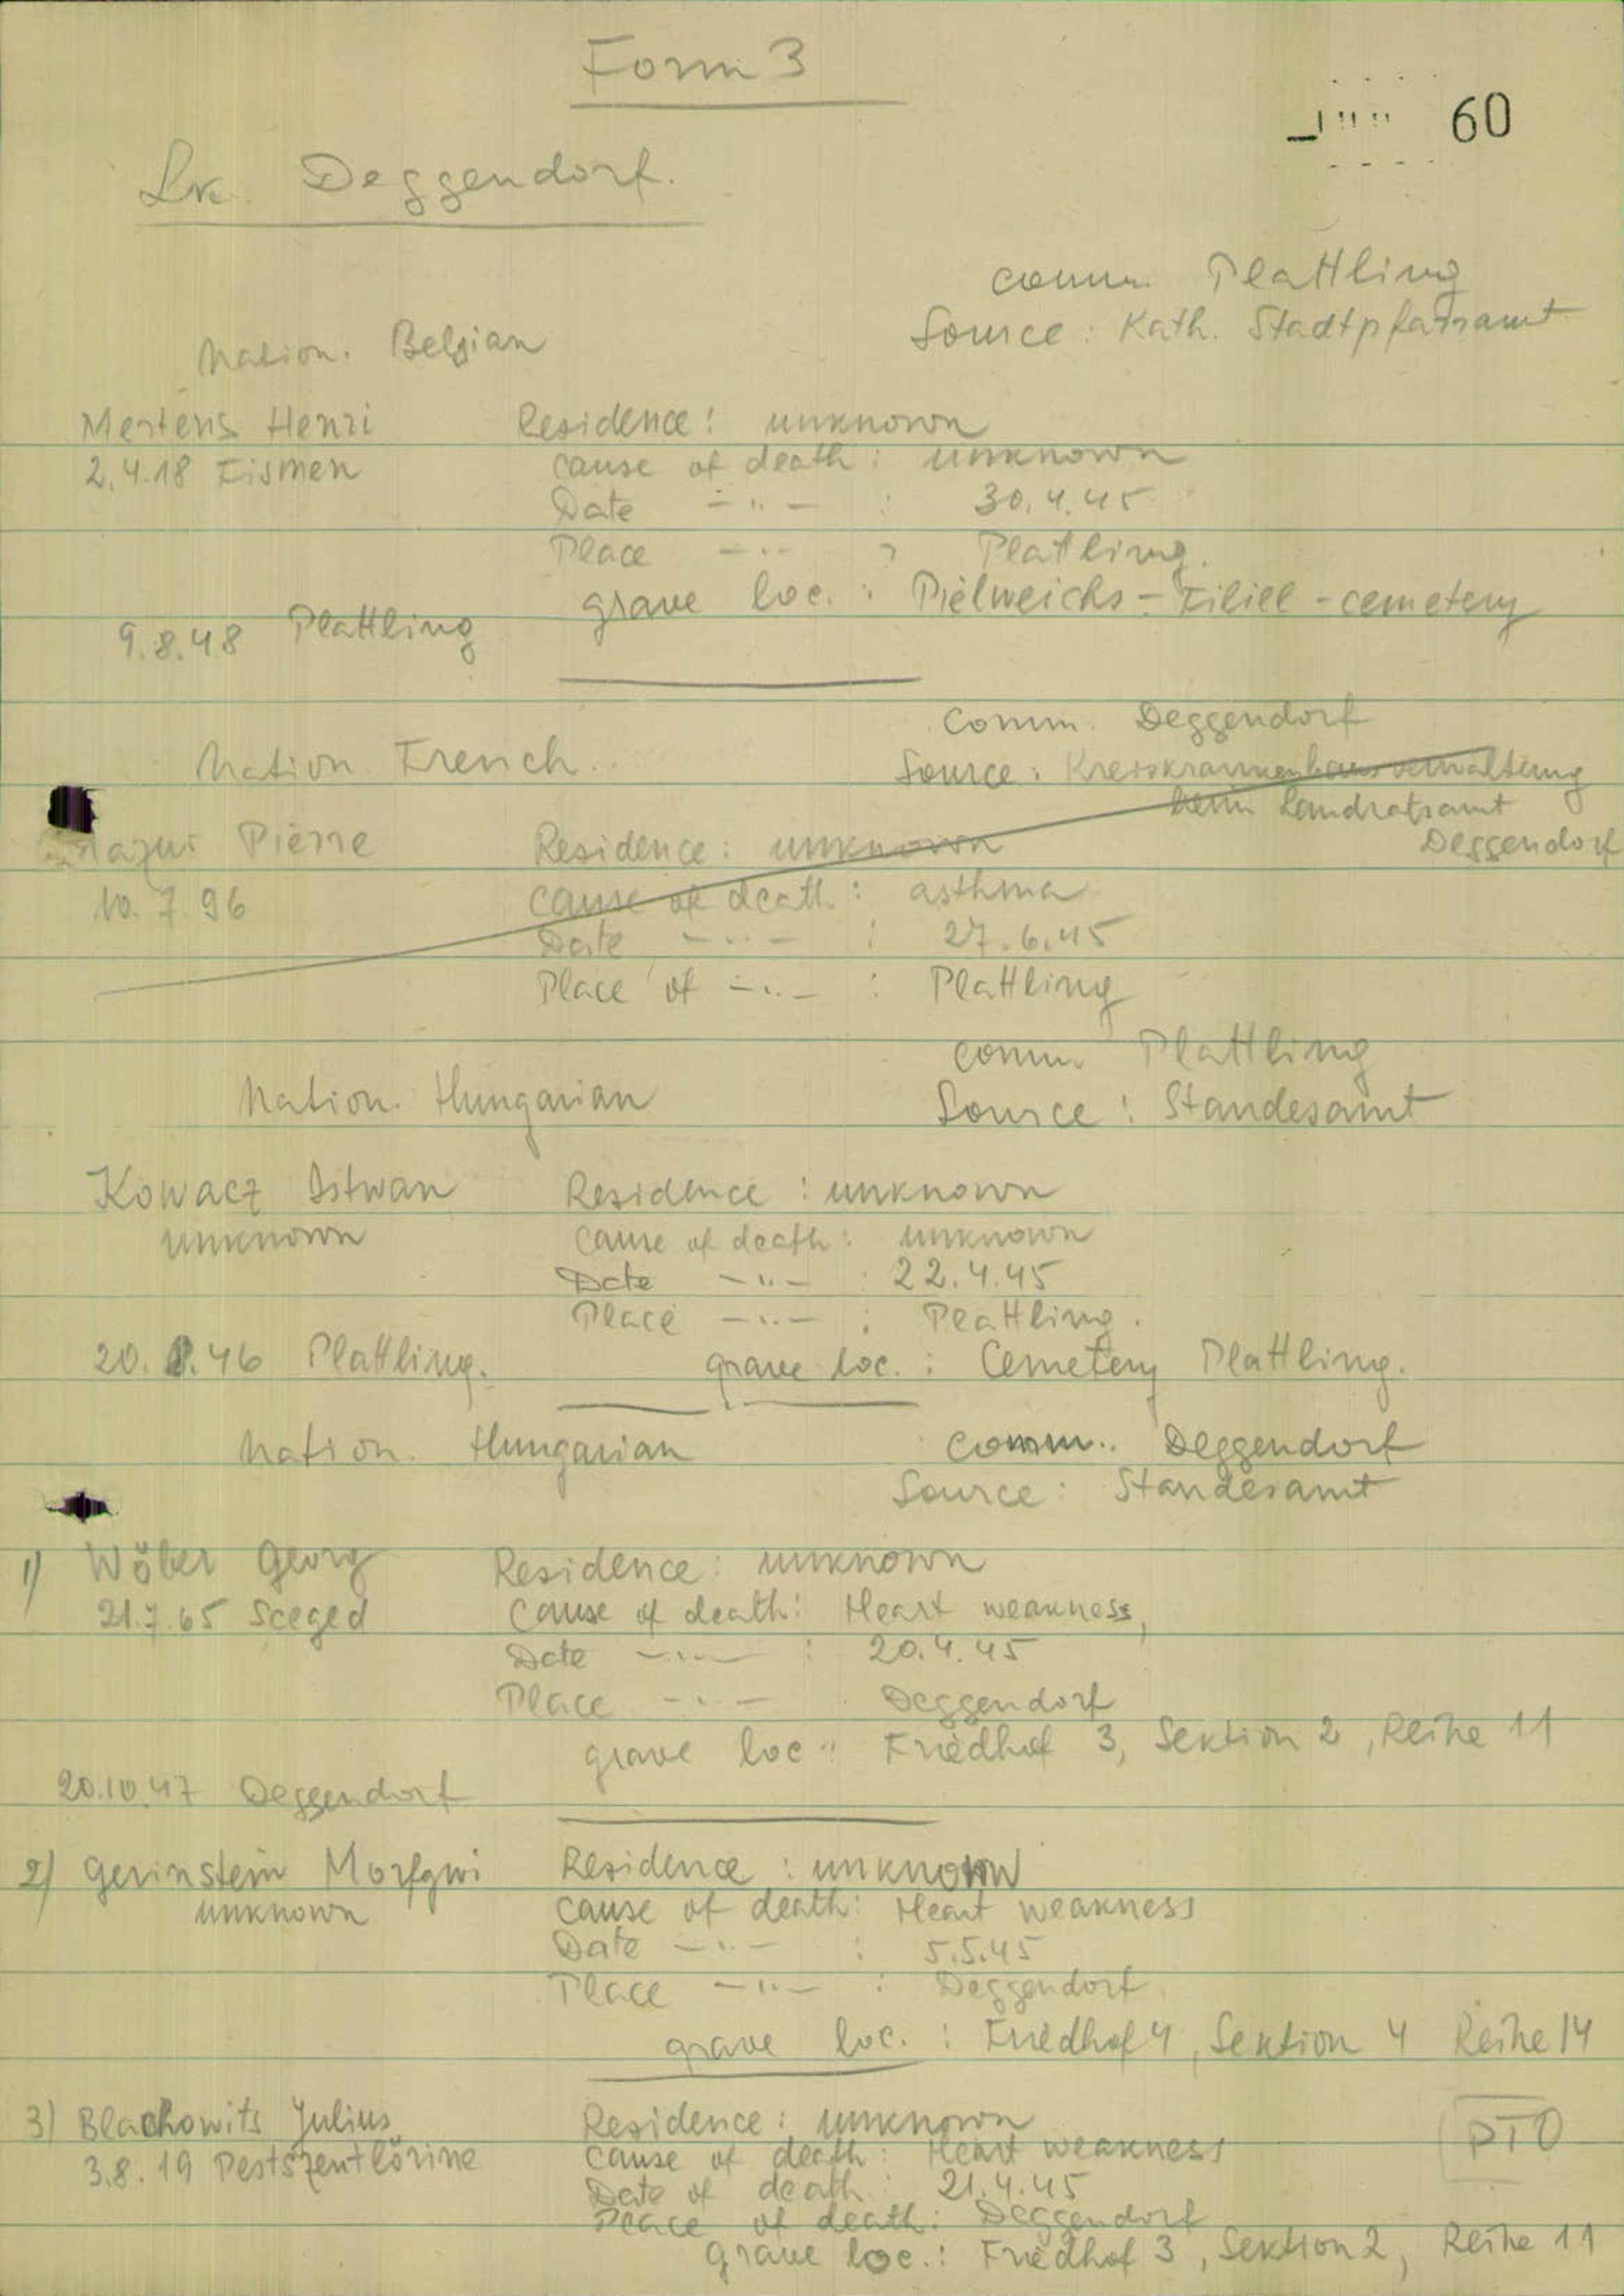 Form 3
60
Lk. Deggendorf.
comm. Plattling
Source: Kath. Stadtpfarramt
Nation. Belgian
Mertens Henri Residence: unknown
2.4.18 Eismen cause of death: unknown
Date -"- : 30.4.45
Place -"- : Plattling.
grave loc.: Pielweichs-Filiell-cemetery
9.8.48 Plattling
comm. Deggendorf
Nation. French
Source: Kreiskrankenhausverwaltung
beim Landratsamt
Deggendorf
Pierre Residence: unknown
10.7.96 cause of death: asthma
Date -"- : 27.6.45
Place of -"- : Plattling
comm. Plattling
Nation. Hungarian
Source: Standesamt
Kowacz Istwan Residence: unknown
unknown cause of death: unknown
Date -"- : 22.4.45
Place -"- : Plattling.
20.8.46 Plattling. grave loc.: Cemetery Plattling.
Nation. Hungarian comm. Deggendorf
Source: Standesamt
1) Wöber Georg Residence: unknown
21.7.65 Sceged Cause of death: Heart weakness,
Date -"- : 20.4.45
Place -"- Deggendorf
grave loc: Friedhof 3, Sektion 2, Reihe 11
20.10.47 Deggendorf
2) Gerinstein Morfgwi Residence: unknown
unknown cause of death: Heart weakness
Date -"- : 5.5.45
Place -"- : Deggendorf
grave loc.: Friedhof 4, Sektion 4 Reihe 14
3) Blachowits Julius Residence: unknown
3.8.19 Pestszentlörine cause of death: Heart weakness
Date of death: 21.4.45
Place of death: Deggendorf
grave loc.: Friedhof 3, Sektion 2, Reihe 11
PTO